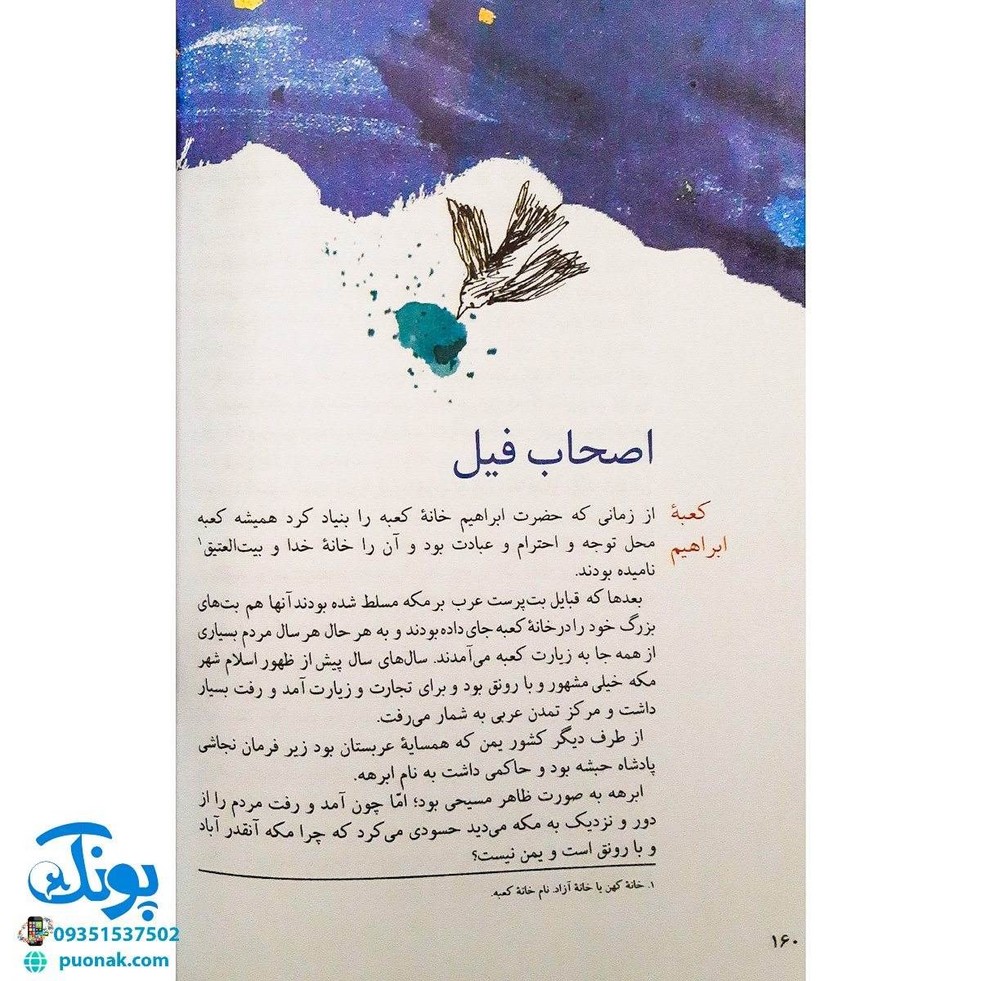 اصحاب فیل
کعبۀ
ابراهیم
از زمانی که حضرت ابراهیم خانۀ کعبه را بنیاد کرد همیشه کعبه
محل توجه و احترام و عبادت بود و آن را خانۀ خدا و بیت‌العتیق۱
نامیده بودند.
بعدها که قبایل بت‌پرست عرب بر مکه مسلط شده بودند آنها هم بت‌های
بزرگ خود را در خانۀ کعبه جای داده بودند و به هر حال هر سال مردم بسیاری
از همه جا به زیارت کعبه می‌آمدند. سال‌های سال پیش از ظهور اسلام شهر
مکه خیلی مشهور و با رونق بود و برای تجارت و زیارت آمد و رفت بسیار
داشت و مرکز تمدن عربی به شمار می‌رفت.
از طرف دیگر کشور یمن که همسایۀ عربستان بود زیر فرمان نجاشی
پادشاه حبشه بود و حاکمی داشت به نام ابرهه.
ابرهه به صورت ظاهر مسیحی بود؛ امّا چون آمد و رفت مردم را از
دور و نزدیک به مکه می‌دید حسودی می‌کرد که چرا مکه آنقدر آباد
و با رونق است و یمن نیست؟
۱. خانۀ کهن یا خانۀ آزاد. نام خانۀ کعبه.
۱۶۰
پونک
09351537502
puonak.com